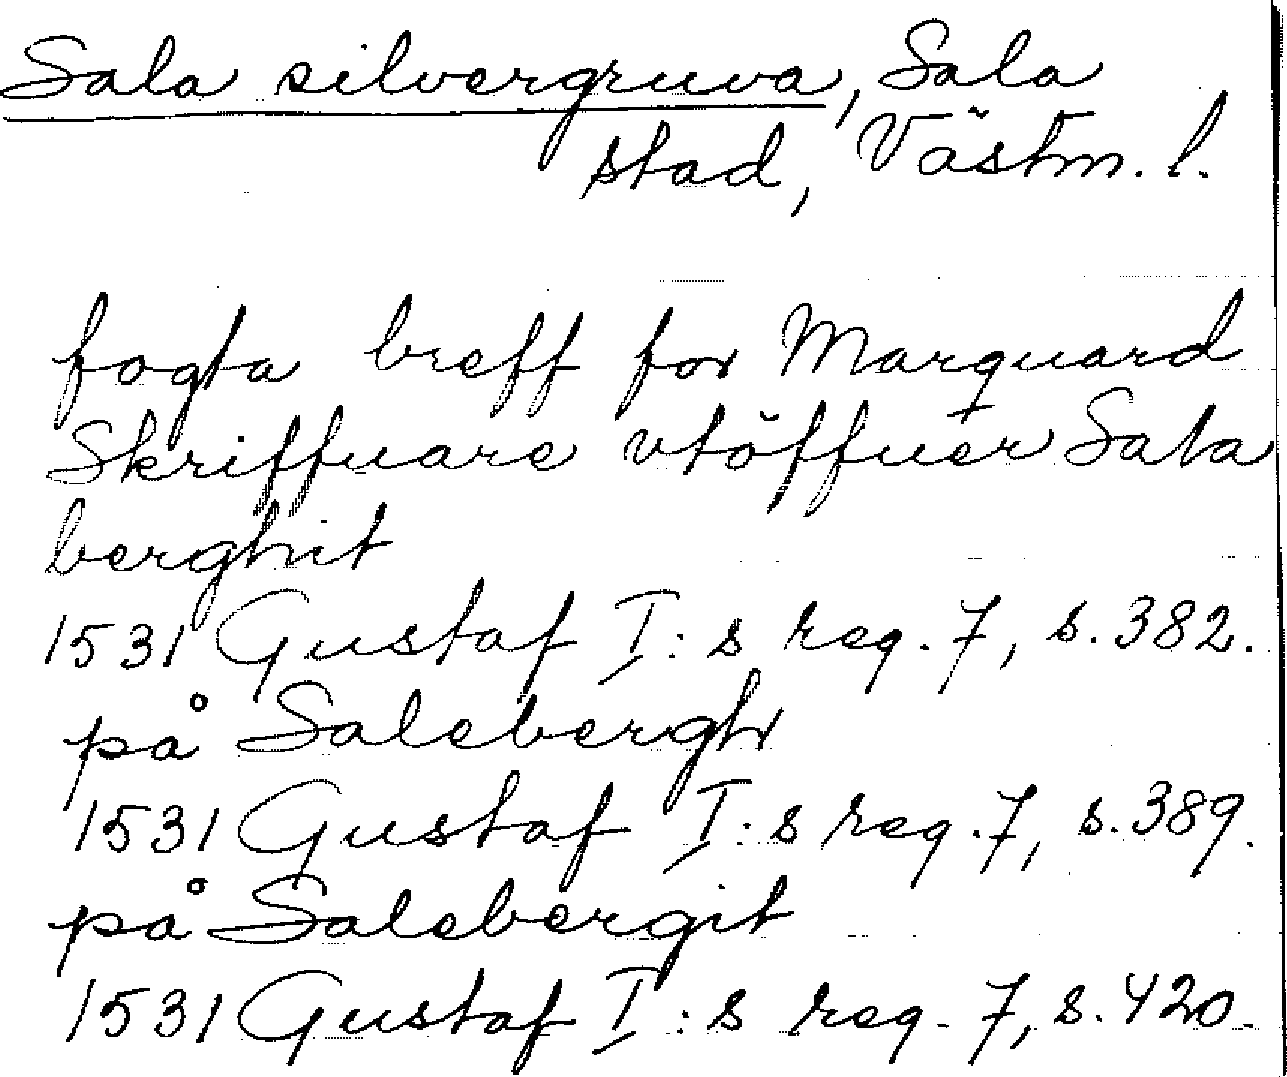 Sala silvergruva, Sala
stad, Västm. l.
fogta breff for Marquard
Skriffuare vtöffuer Sala
berghit
1531 Gustaf I:s reg. 7, s. 382.
på Salebergh
1531 Gustaf I:s reg. 7, s. 389.
på Salebergit
1531 Gustaf I:s reg. 7, s. 420.